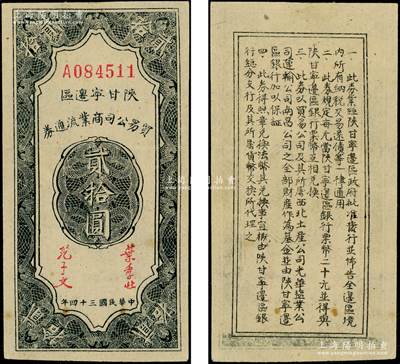 A084511
陝甘寧邊區
貿易公司商業流通券
貳拾圓
葉季壯
范子文
中華民國三十四年
一 此券業經陝甘寧邊區政府批准發行並佈告全邊區境
內所有納稅交易還債等一律通用
二 此券規定每元當陝甘寧邊區銀行票幣二十元並得與
陝甘寧邊區銀行票幣互相兌換
三 此券以貿易公司及其所屬西北土產公司光華鹽業公
司運輸公司南昌公司之全部財產作為基金並由陝甘寧邊
區銀行加以保証
四 此券得照章兌換法幣其兌換事宜概由陝甘寧邊區銀
行總分支行及其所屬貨幣交換所代理之